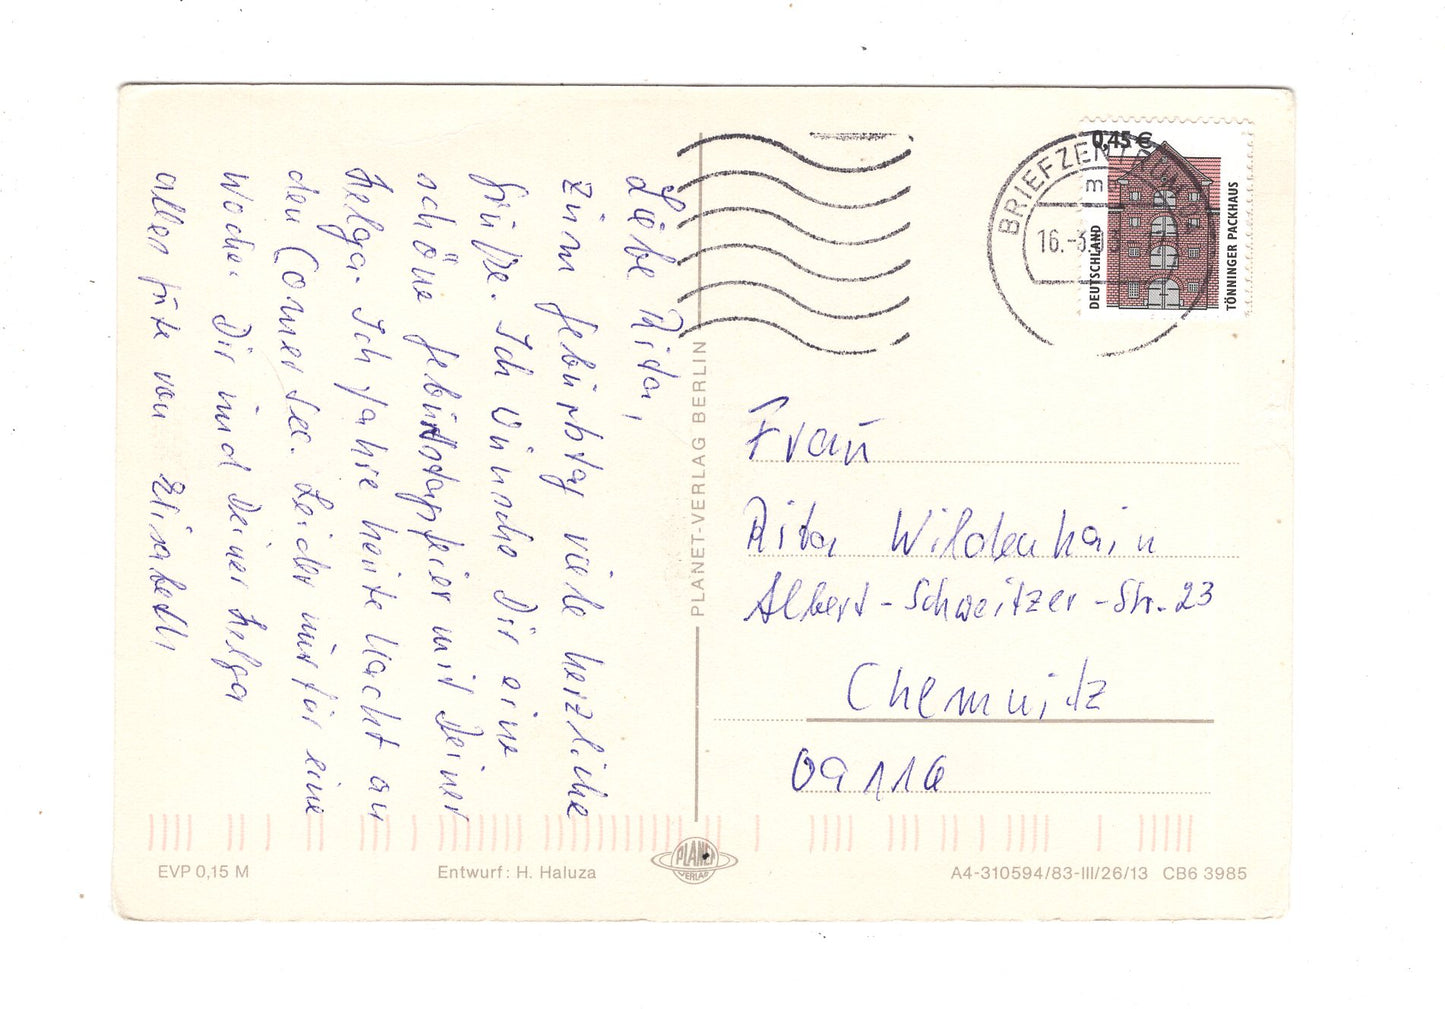 Liebe Rita,
zum Geburtstag viele herzliche
Grüße. Ich wünsche Dir eine
schöne Geburtstagsfeier mit Deiner
Helga. Ich fahre heute Nacht an
den Comer See. Leider nur für eine
Woche. Dir und Deiner Helga
alles Gute von Elisabeth
PLANET-VERLAG BERLIN
0,45 €
DEUTSCHLAND
TÖNNINGER PACKHAUS
BRIEFZENTRUM
16.-3.
Frau
Rita Wildenhain
Albert-Schweitzer-Str. 23
Chemnitz
09116
PLANET
VERLAG
EVP 0,15 M
Entwurf: H. Haluza
A4-310594/83-III/26/13 CB6 3985